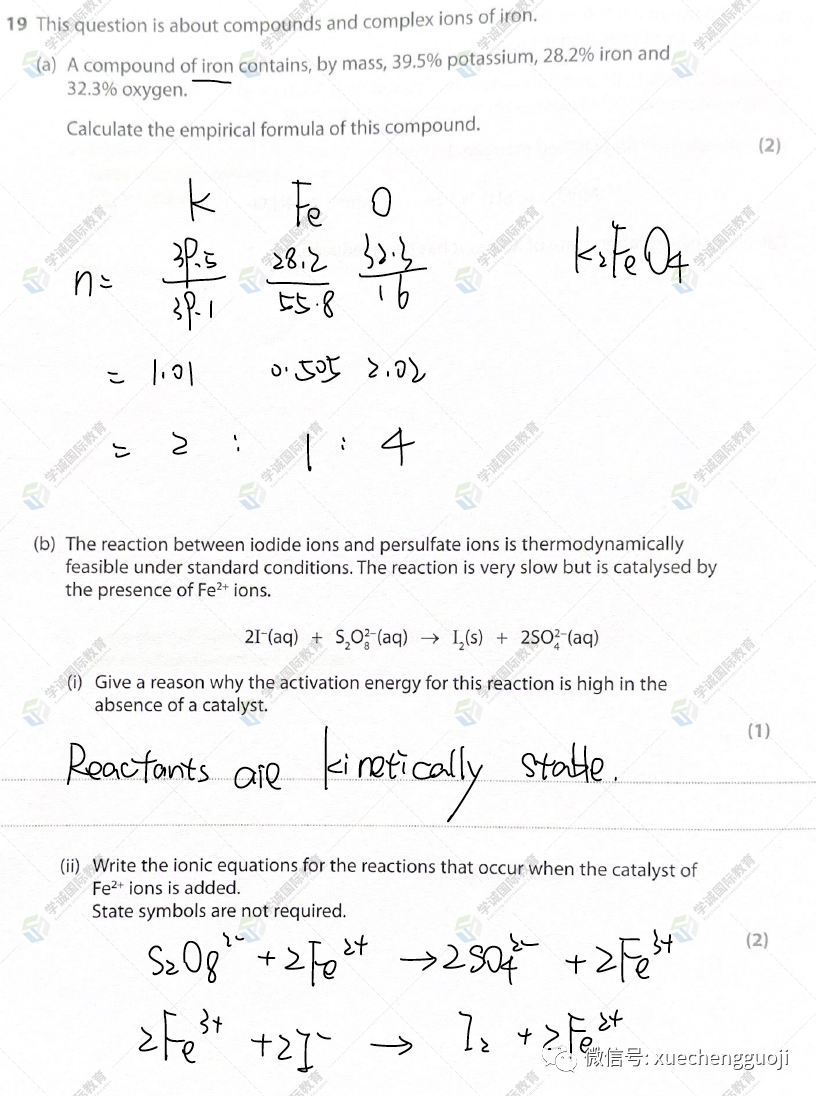 19 This question is about compounds and complex ions of iron.
(a) A compound of iron contains, by mass, 39.5% potassium, 28.2% iron and
32.3% oxygen.
Calculate the empirical formula of this compound.
(2)
K Fe O
n= 39.5/39.1 28.2/55.8 32.3/16
K₂FeO₄
= 1.01 0.505 2.02
= 2 : 1 : 4
(b) The reaction between iodide ions and persulfate ions is thermodynamically
feasible under standard conditions. The reaction is very slow but is catalysed by
the presence of Fe²⁺ ions.
2I⁻(aq) + S₂O₈²⁻(aq) → I₂(s) + 2SO₄²⁻(aq)
(i) Give a reason why the activation energy for this reaction is high in the
absence of a catalyst.
(1)
Reactants are kinetically stable.
(ii) Write the ionic equations for the reactions that occur when the catalyst of
Fe²⁺ ions is added.
State symbols are not required.
(2)
S₂O₈²⁻ + 2Fe²⁺ → 2SO₄²⁻ + 2Fe³⁺
2Fe³⁺ + 2I⁻ → I₂ + 2Fe²⁺
微信号: xuechengguoji
学诚国际教育